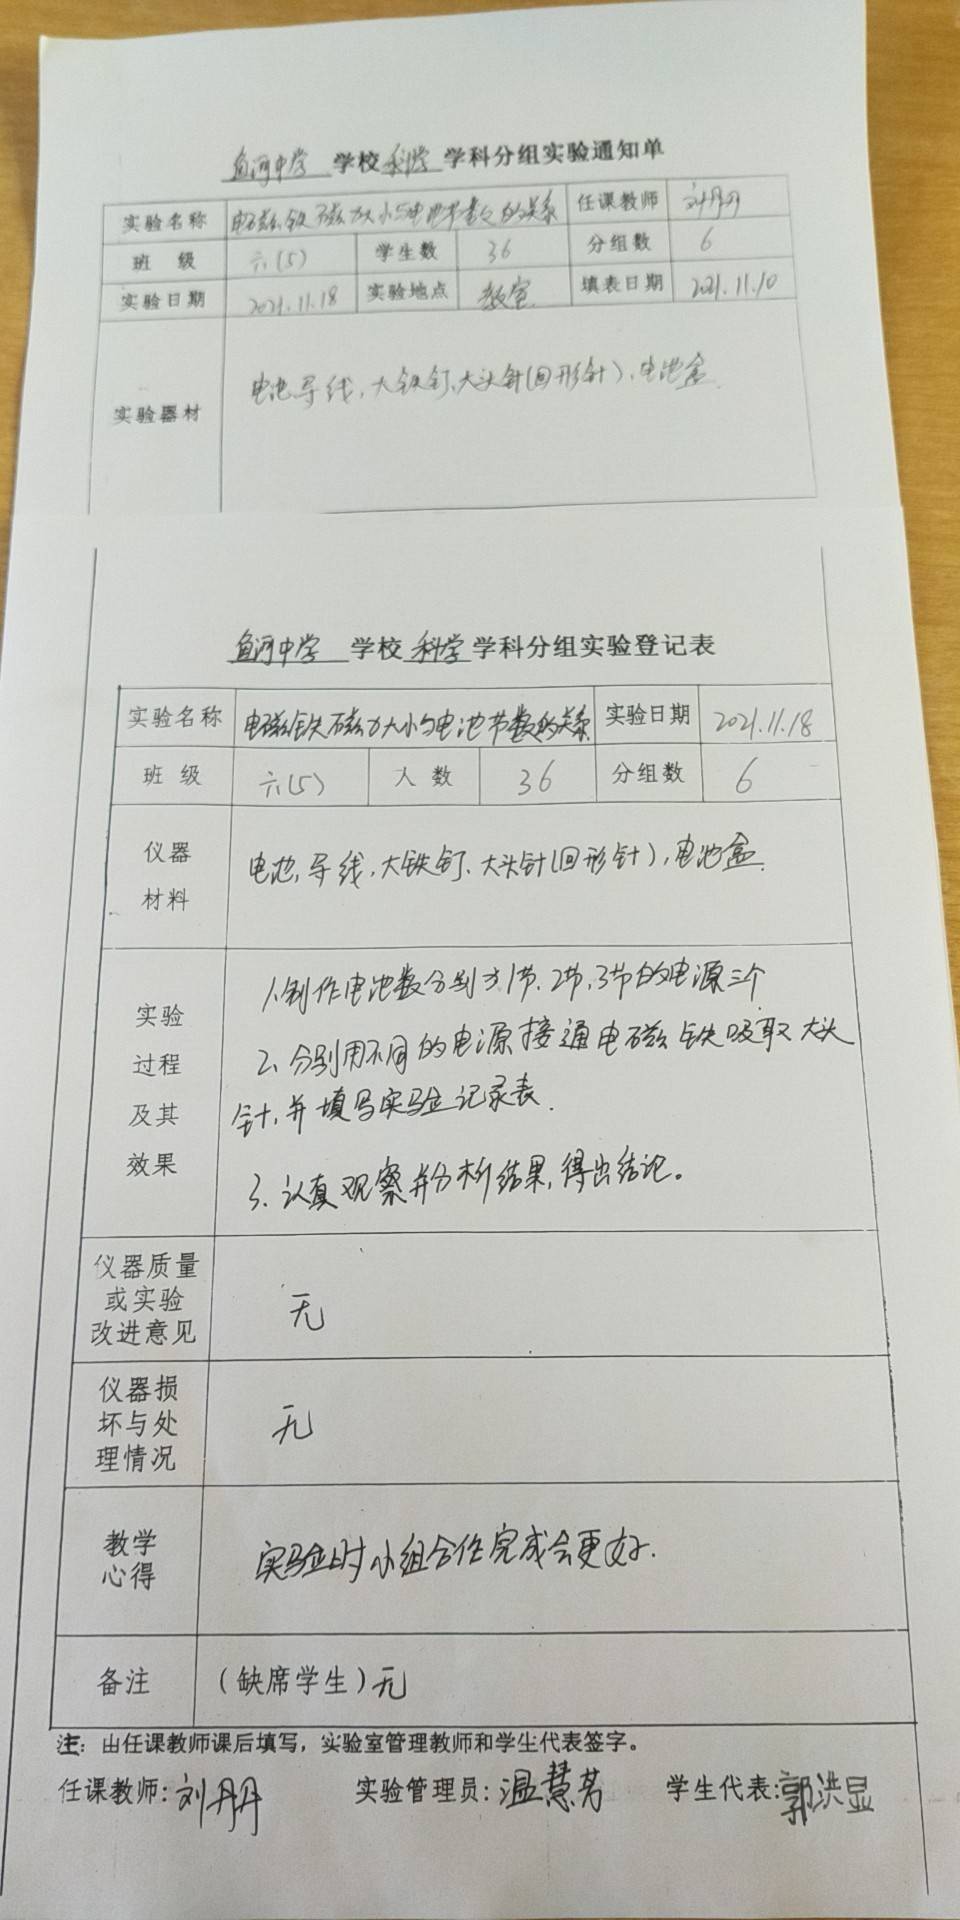 鱼河中学 学校 科学 学科分组实验通知单
实验名称 电磁铁磁力大小与电池节数的关系 任课教师 刘丹丹
班 级 六(5) 学生数 36 分组数 6
实验日期 2021.11.18 实验地点 教室 填表日期 2021.11.10
实验器材 电池、导线、大铁钉、大头针(回形针)、电池盒.
鱼河中学 学校 科学 学科分组实验登记表
实验名称 电磁铁磁力大小与电池节数的关系 实验日期 2021.11.18
班 级 六(5) 人 数 36 分组数 6
仪器
材料
电池、导线、大铁钉、大头针(回形针)、电池盒.
实验
过程
及其
效果
1.制作电池数分别为1节、2节、3节的电源三个
2.分别用不同的电源接通电磁铁吸取大头
针,并填写实验记录表.
3.认真观察并分析结果,得出结论。
仪器质量
或实验
改进意见
无
仪器损
坏与处
理情况
无
教学
心得
实验时小组合作完成会更好.
备注 (缺席学生)无
注: 由任课教师课后填写,实验室管理教师和学生代表签字。
任课教师:刘丹丹 实验管理员:温慧芳 学生代表:郭洪显